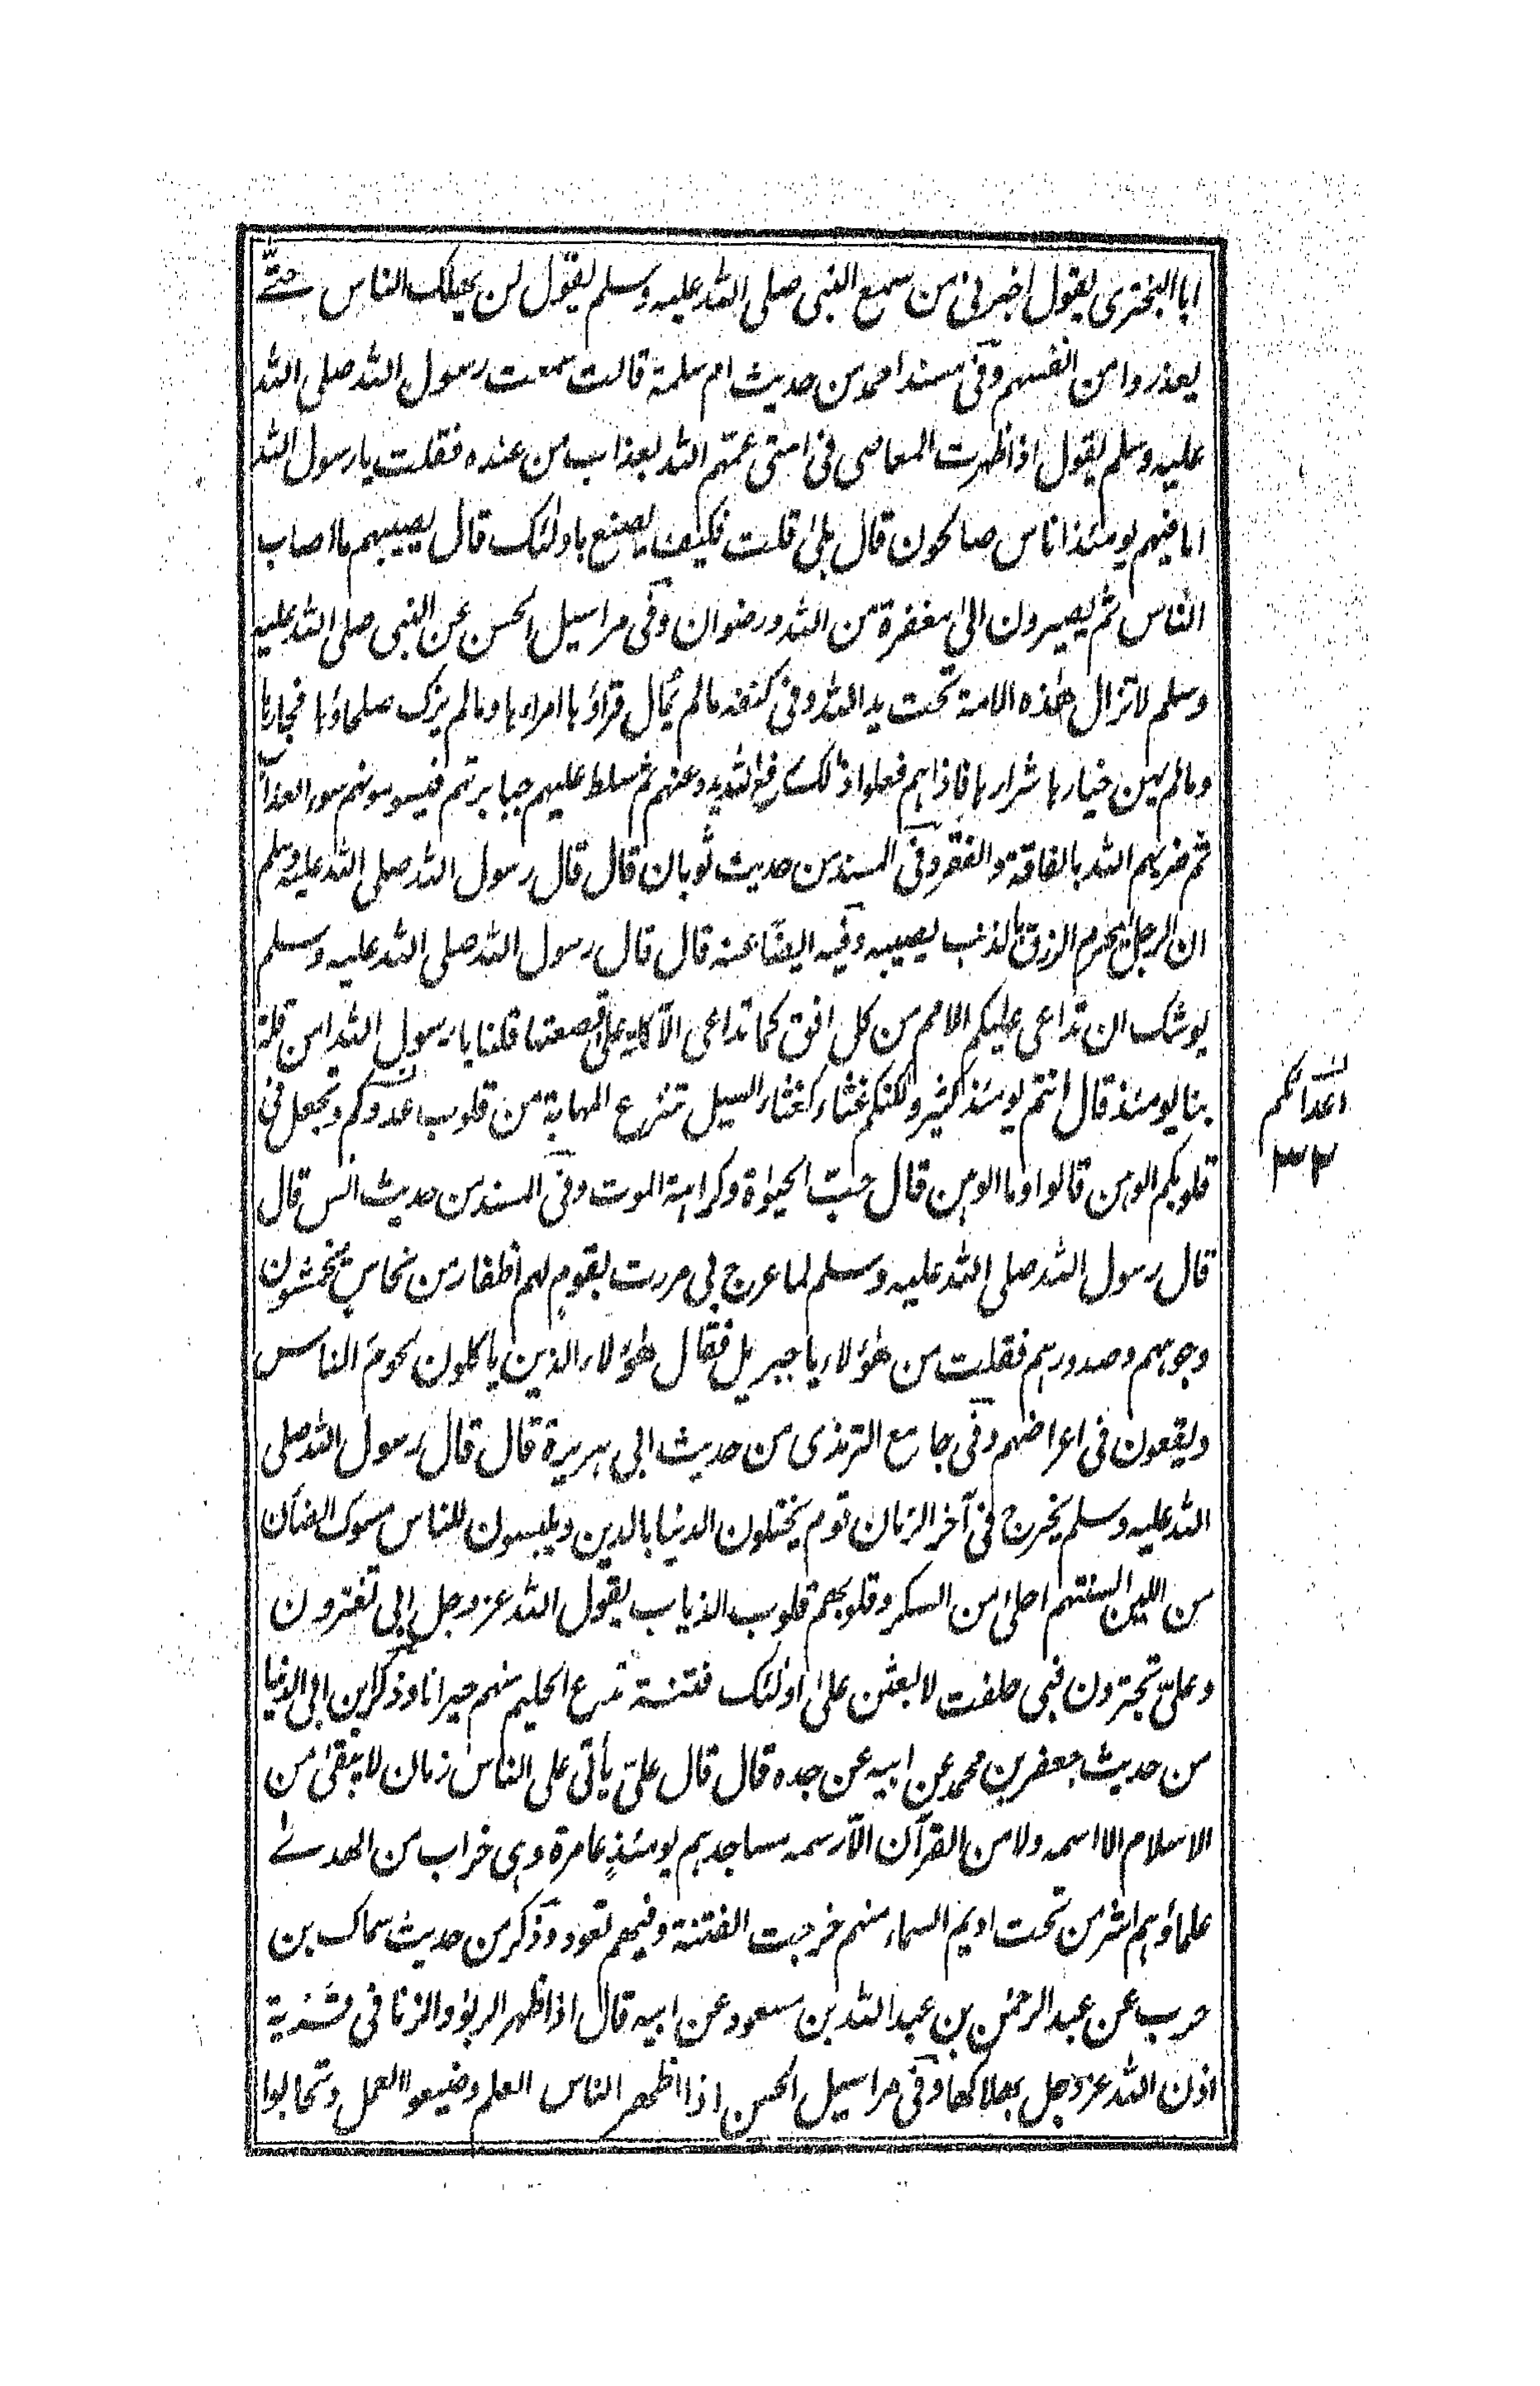 ابا البختری یقول اخبرنی من سمع النبی صلی اللہ علیہ وسلم یقول لن یہلک الناس حتّٰے
یعذروا من انفسہم وفی مسند احمد من حدیث ام سلمۃ قالت سمعت رسول اللہ صلی اللہ
علیہ وسلم یقول اذا ظہرت المعاصی فی امتی عمّہم اللہ بعذاب من عندہ فقلت یا رسول اللہ
اما فیہم یومئذ اناس صالحون قال بلیٰ قلت فکیف یصنع باولئک قال یصیبہم ما اصاب
الناس ثم یصیرون الیٰ مغفرۃ من اللہ ورضوان وفی مراسیل الحسن عن النبی صلی اللہ علیہ
وسلم لا تزال ہٰذہ الامۃ تحت ید اللہ وفی کنفہ مالم یُمال قراؤہا امراءہا ومالم یزک صلحاؤہا فجارہا
ومالم یہن خیارہا شرارہا فاذا ہم فعلوا ذٰلک رفع اللہ یدہ عنہم ثم سلط علیہم جبابرتہم فیسومونہم سوء العذاب
ثم ضربہم اللہ بالفاقۃ والفقر وفی المسند من حدیث ثوبان قال قال رسول اللہ صلی اللہ علیہ وسلم
ان الرجل لیحرم الرزق بالذنب یصیبہ وفیہ ایضًا عنہ قال قال رسول اللہ صلی اللہ علیہ وسلم
یوشک ان تداعی علیکم الامم من کل افق کما تداعی الآکلۃ علیٰ قصعتہا قلنا یا رسول اللہ امن قلۃ
بنا یومئذ قال انتم یومئذ کثیر ولکنکم غثاء کغثاء السیل تنزع المہابۃ من قلوب عدوکم وتجعل فی
اعدائکم
۳۲
قلوبکم الوہن قالوا وما الوہن قال حبّ الحیوٰۃ وکراہیۃ الموت وفی المسند من حدیث انس قال
قال رسول اللہ صلی اللہ علیہ وسلم لما عرج بی مررت بقومٍ لہم اظفار من نحاسٍ یخمشون
وجوہہم وصدورہم فقلت من ہٰؤلاء یا جبریل فقال ہٰؤلاء الذین یاکلون لحوم الناس
ویقعون فی اعراضہم وفی جامع الترمذی من حدیث ابی ہریرۃ قال قال رسول اللہ صلی
اللہ علیہ وسلم یخرج فی آخر الزمان قوم یختلون الدنیا بالدین ویلبسون للناس مسوک الضأن
من اللین السنتہم احلیٰ من السکر وقلوبھم قلوب الذیاب یقول اللہ عزوجل ابی تغترون
وعلیّ تجترون فبی حلفت لابعثن علیٰ اولٰئک فتنۃ تدع الحلیم منہم حیرانا وذکر ابن ابی الدنیا
من حدیث جعفر بن محمد عن ابیہ عن جدہ قال قال علیّ یأتی علی الناس زمان لا یبقیٰ من
الاسلام الا اسمہ ولا من القرآن الّا رسمہ مساجدہم یومئذٍ عامرۃ وہی خراب من الھدےٰ
علماؤہم اشر من تحت ادیم السماء منہم خرجت الفتنۃ وفیھم تعود وذکر من حدیث سماک بن
حرب عن عبد الرحمٰن بن عبد اللہ بن مسعود عن ابیہ قال اذا ظہر الربوٰ والزنا فی قریۃ
اذن اللہ عزوجل بھلاکھا وفی مراسیل الحسن اذا اظھر الناس العلم وضیعوا العمل وتحابوا